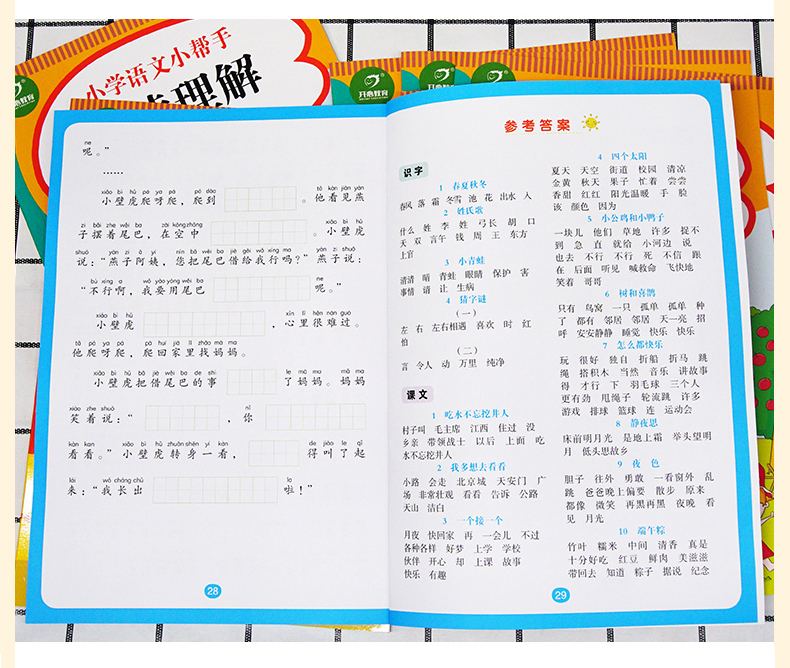 小学语文小帮手
理解
开心教育
ne
呢。”
……
xiǎo bì hǔ pá ya pá pá dào tā kàn jiàn yàn
小壁虎爬呀爬，爬到。他看见燕
zi bǎi zhe wěi ba zài kōng zhōng xiǎo bì hǔ
子摆着尾巴，在空中。小壁虎
shuō yàn zi ā yí nín bǎ wěi ba jiè gěi wǒ xíng ma yàn zi shuō
说：“燕子阿姨，您把尾巴借给我行吗？”燕子说：
bù xíng a wǒ yào yòng wěi ba ne
“不行啊，我要用尾巴呢。”
xiǎo bì hǔ xīn lǐ hěn nán guò
小壁虎，心里很难过。
tā pá ya pá pá huí jiā lǐ zhǎo mā ma
他爬呀爬，爬回家里找妈妈。
xiǎo bì hǔ bǎ jiè wěi ba de shì le mā ma mā ma
小壁虎把借尾巴的事了妈妈。妈妈
xiào zhe shuō nǐ
笑着说：“，你
kàn kan xiǎo bì hǔ zhuǎn shēn yí kàn de jiào le qǐ
看看。”小壁虎转身一看，得叫了起
lái wǒ zhǎng chū la
来：“我长出啦！”
28
参考答案
识字
1 春夏秋冬
春风 落 霜 冬雪 池 花 出水 入
2 姓氏歌
什么 姓 李 姓 弓长 胡 口
天 双 言午 钱 周 王 东方
上官
3 小青蛙
清清 晴 青蛙 眼睛 保护 害
事情 请 让 生病
4 猜字谜
（一）
左 右 左右相遇 喜欢 时 红
怕
（二）
言 令人 动 万里 纯净
课文
1 吃水不忘挖井人
村子叫 毛主席 江西 住过 没
乡亲 带领战士 以后 上面 吃
水不忘挖井人
2 我多想去看看
小路 会走 北京城 天安门 广
场 非常壮观 看看 告诉 公路
天山 洁白
3 一个接一个
月夜 快回家 再 一会儿 不过
各种各样 好梦 上学 学校
伙伴 开心 却 上课 故事
快乐 有趣
4 四个太阳
夏天 天空 街道 校园 清凉
金黄 秋天 果子 忙着 尝尝
香甜 红红 阳光温暖 手 脸
该 颜色 因为
5 小公鸡和小鸭子
一块儿 他们 草地 许多 捉不
到 急 直 就给 小河边 说
也去 不行 不行 死 不信 跟
在 后面 听见 喊救命 飞快地
笑着 哥哥
6 树和喜鹊
只有 鸟窝 一只 孤单 孤单 种
了 都有 邻居 邻居 天一亮 招
呼 安安静静 睡觉 快乐 快乐
7 怎么都快乐
玩 很好 独自 折船 折马 跳
绳 搭积木 当然 音乐 讲故事
得 才行 下 羽毛球 三个人
更有劲 甩绳子 轮流跳 许多
游戏 排球 篮球 连 运动会
8 静夜思
床前明月光 是地上霜 举头望明
月 低头思故乡
9 夜色
胆子 往外 勇敢 一看窗外 乱
跳 爸爸晚上偏要 散步 原来
都像 微笑 再黑再黑 夜晚 看
见 月光
10 端午粽
竹叶 糯米 中间 清香 真是
十分好吃 红豆 鲜肉 美滋滋
带回去 知道 粽子 据说 纪念
29